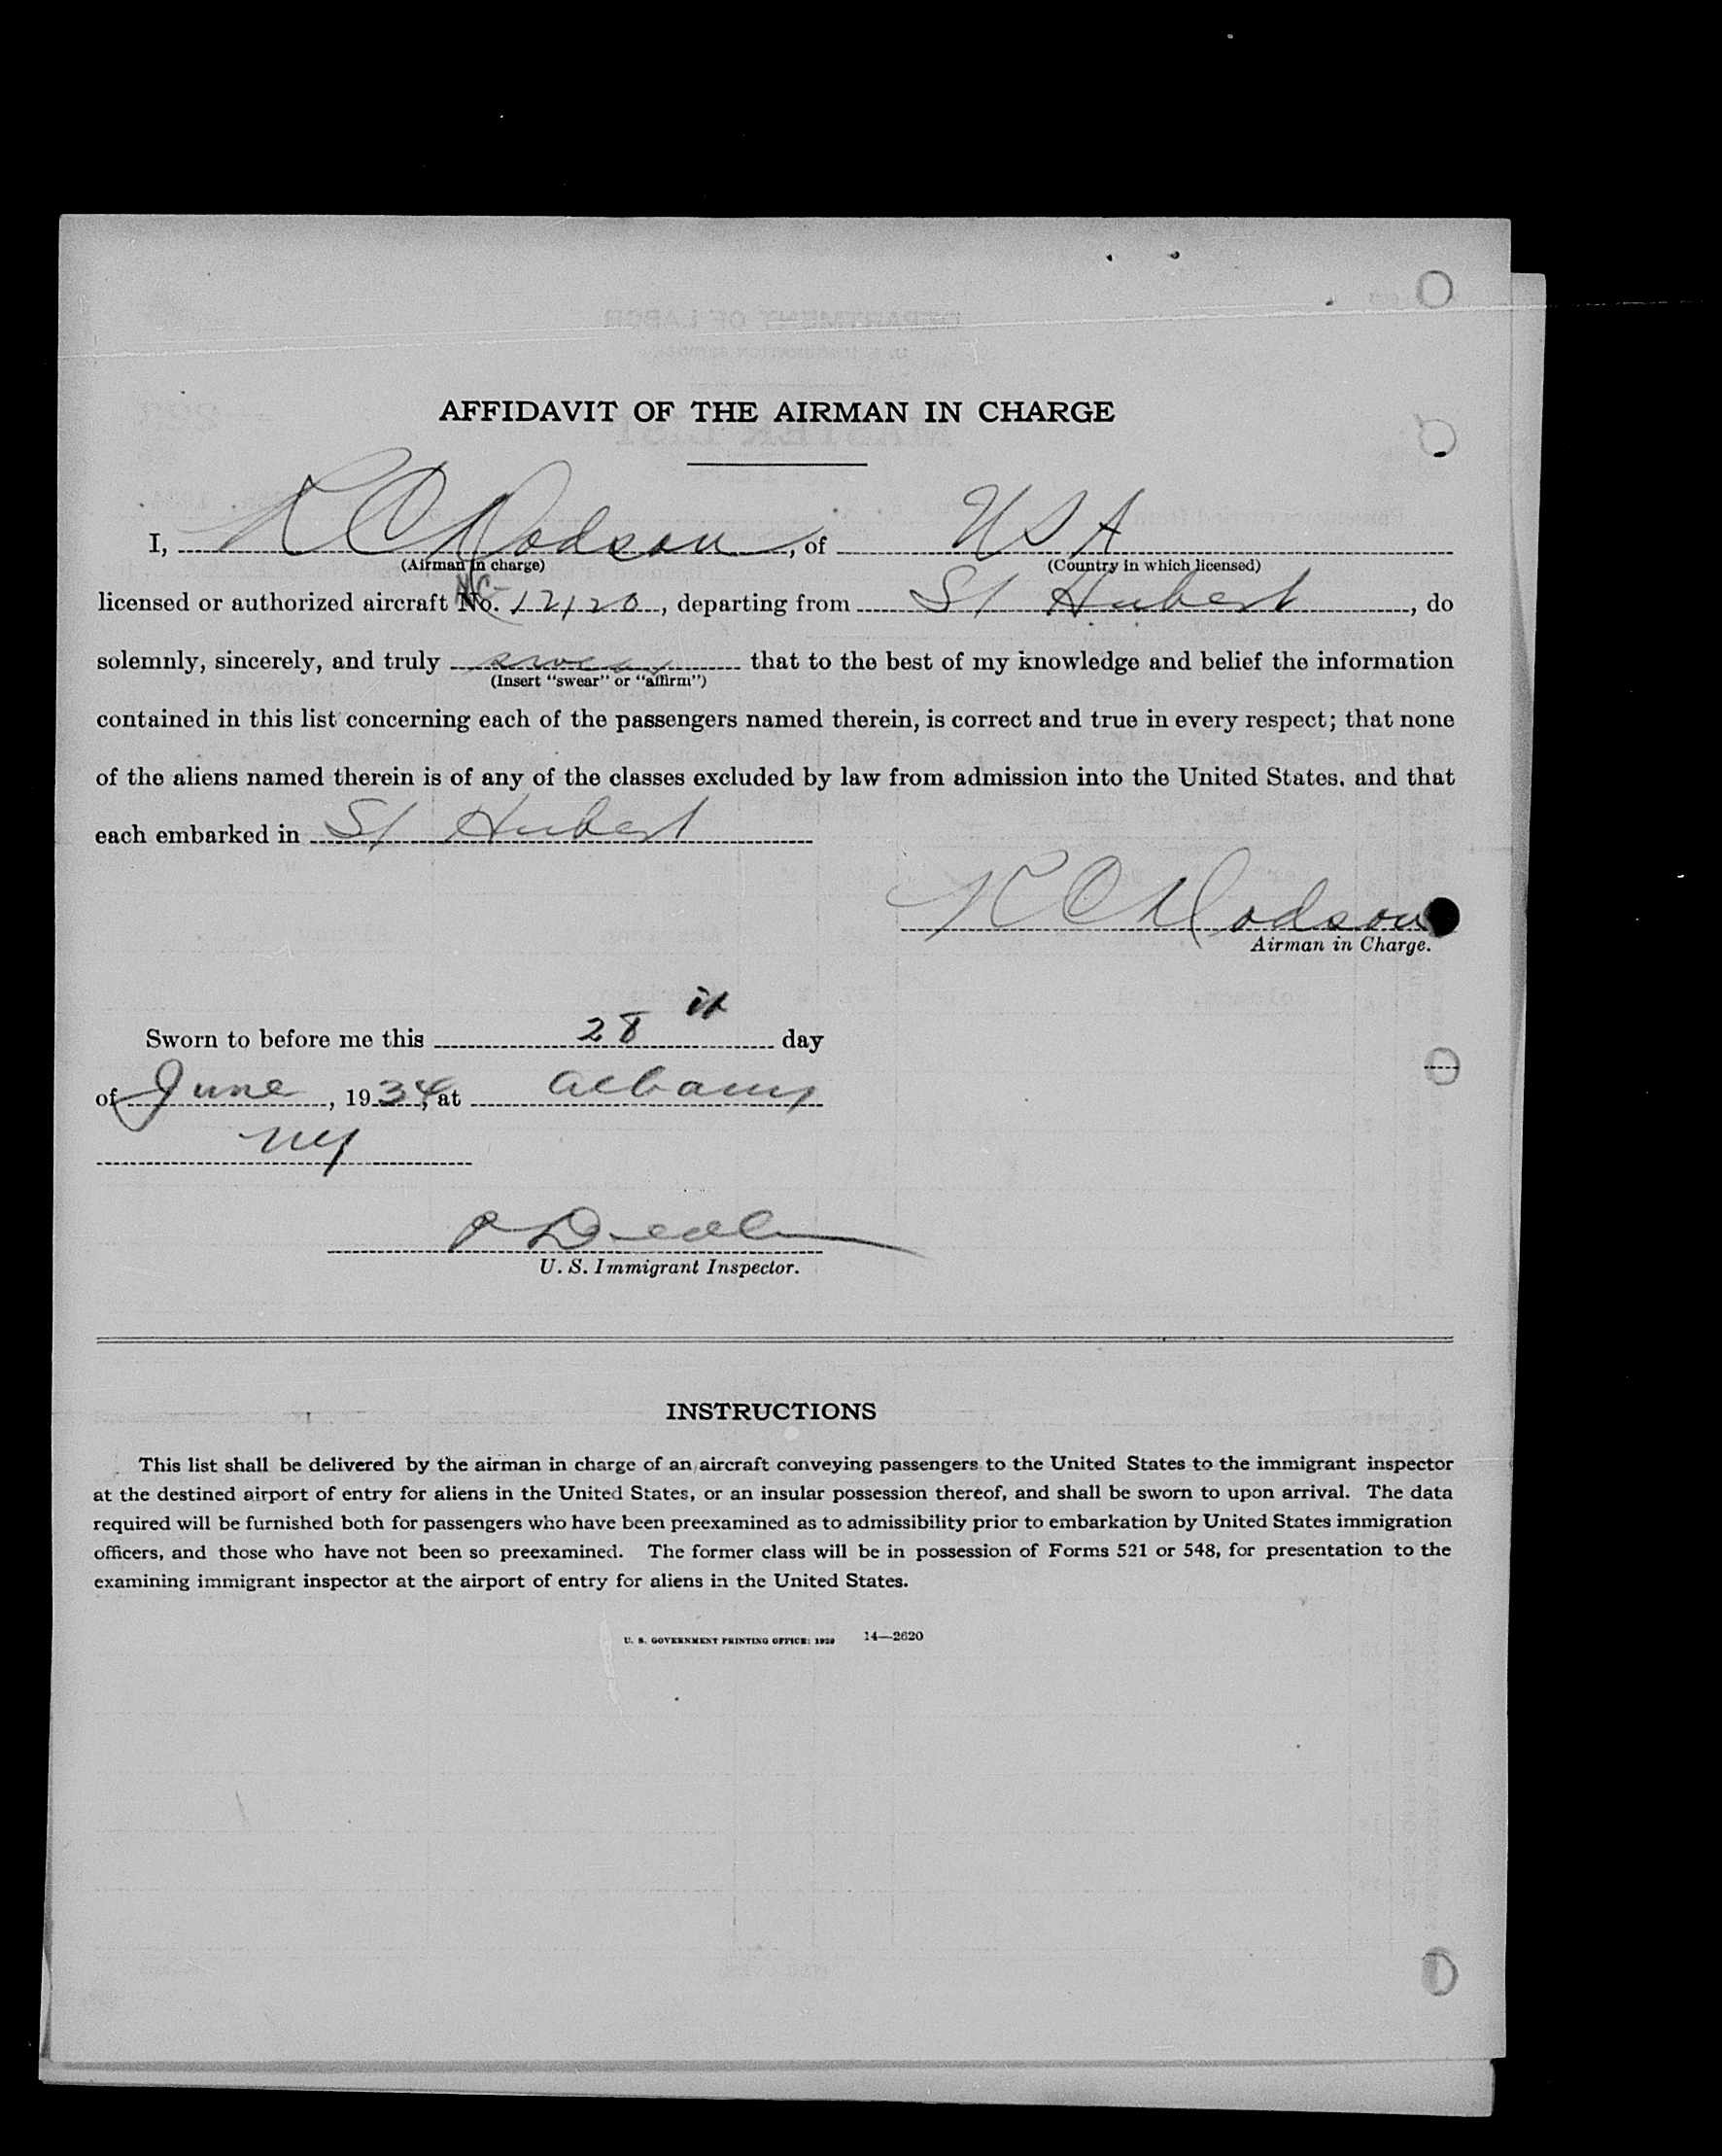 AFFIDAVIT OF THE AIRMAN IN CHARGE
I, R C Dodson, of U S A
(Airman in charge) (Country in which licensed)
licensed or authorized aircraft No. NC- 12120, departing from St Hubert, do
solemnly, sincerely, and truly swear that to the best of my knowledge and belief the information
(Insert "swear" or "affirm")
contained in this list concerning each of the passengers named therein, is correct and true in every respect; that none
of the aliens named therein is of any of the classes excluded by law from admission into the United States, and that
each embarked in St Hubert
R C Dodson
Airman in Charge.
Sworn to before me this 28 th day
of June, 1934, at Albany
NY
U. S. Immigrant Inspector.
INSTRUCTIONS
This list shall be delivered by the airman in charge of an aircraft conveying passengers to the United States to the immigrant inspector
at the destined airport of entry for aliens in the United States, or an insular possession thereof, and shall be sworn to upon arrival. The data
required will be furnished both for passengers who have been preexamined as to admissibility prior to embarkation by United States immigration
officers, and those who have not been so preexamined. The former class will be in possession of Forms 521 or 548, for presentation to the
examining immigrant inspector at the airport of entry for aliens in the United States.
U. S. GOVERNMENT PRINTING OFFICE: 1929 14—2620